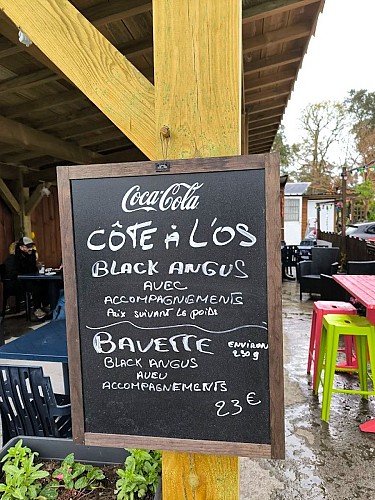 Coca-Cola
CÔTE À L'OS
BLACK ANGUS
AVEC
ACCOMPAGNEMENTS
Prix suivant le poids
BAVETTE ENVIRON 230 g
BLACK ANGUS
AVEC
ACCOMPAGNEMENTS
23 €